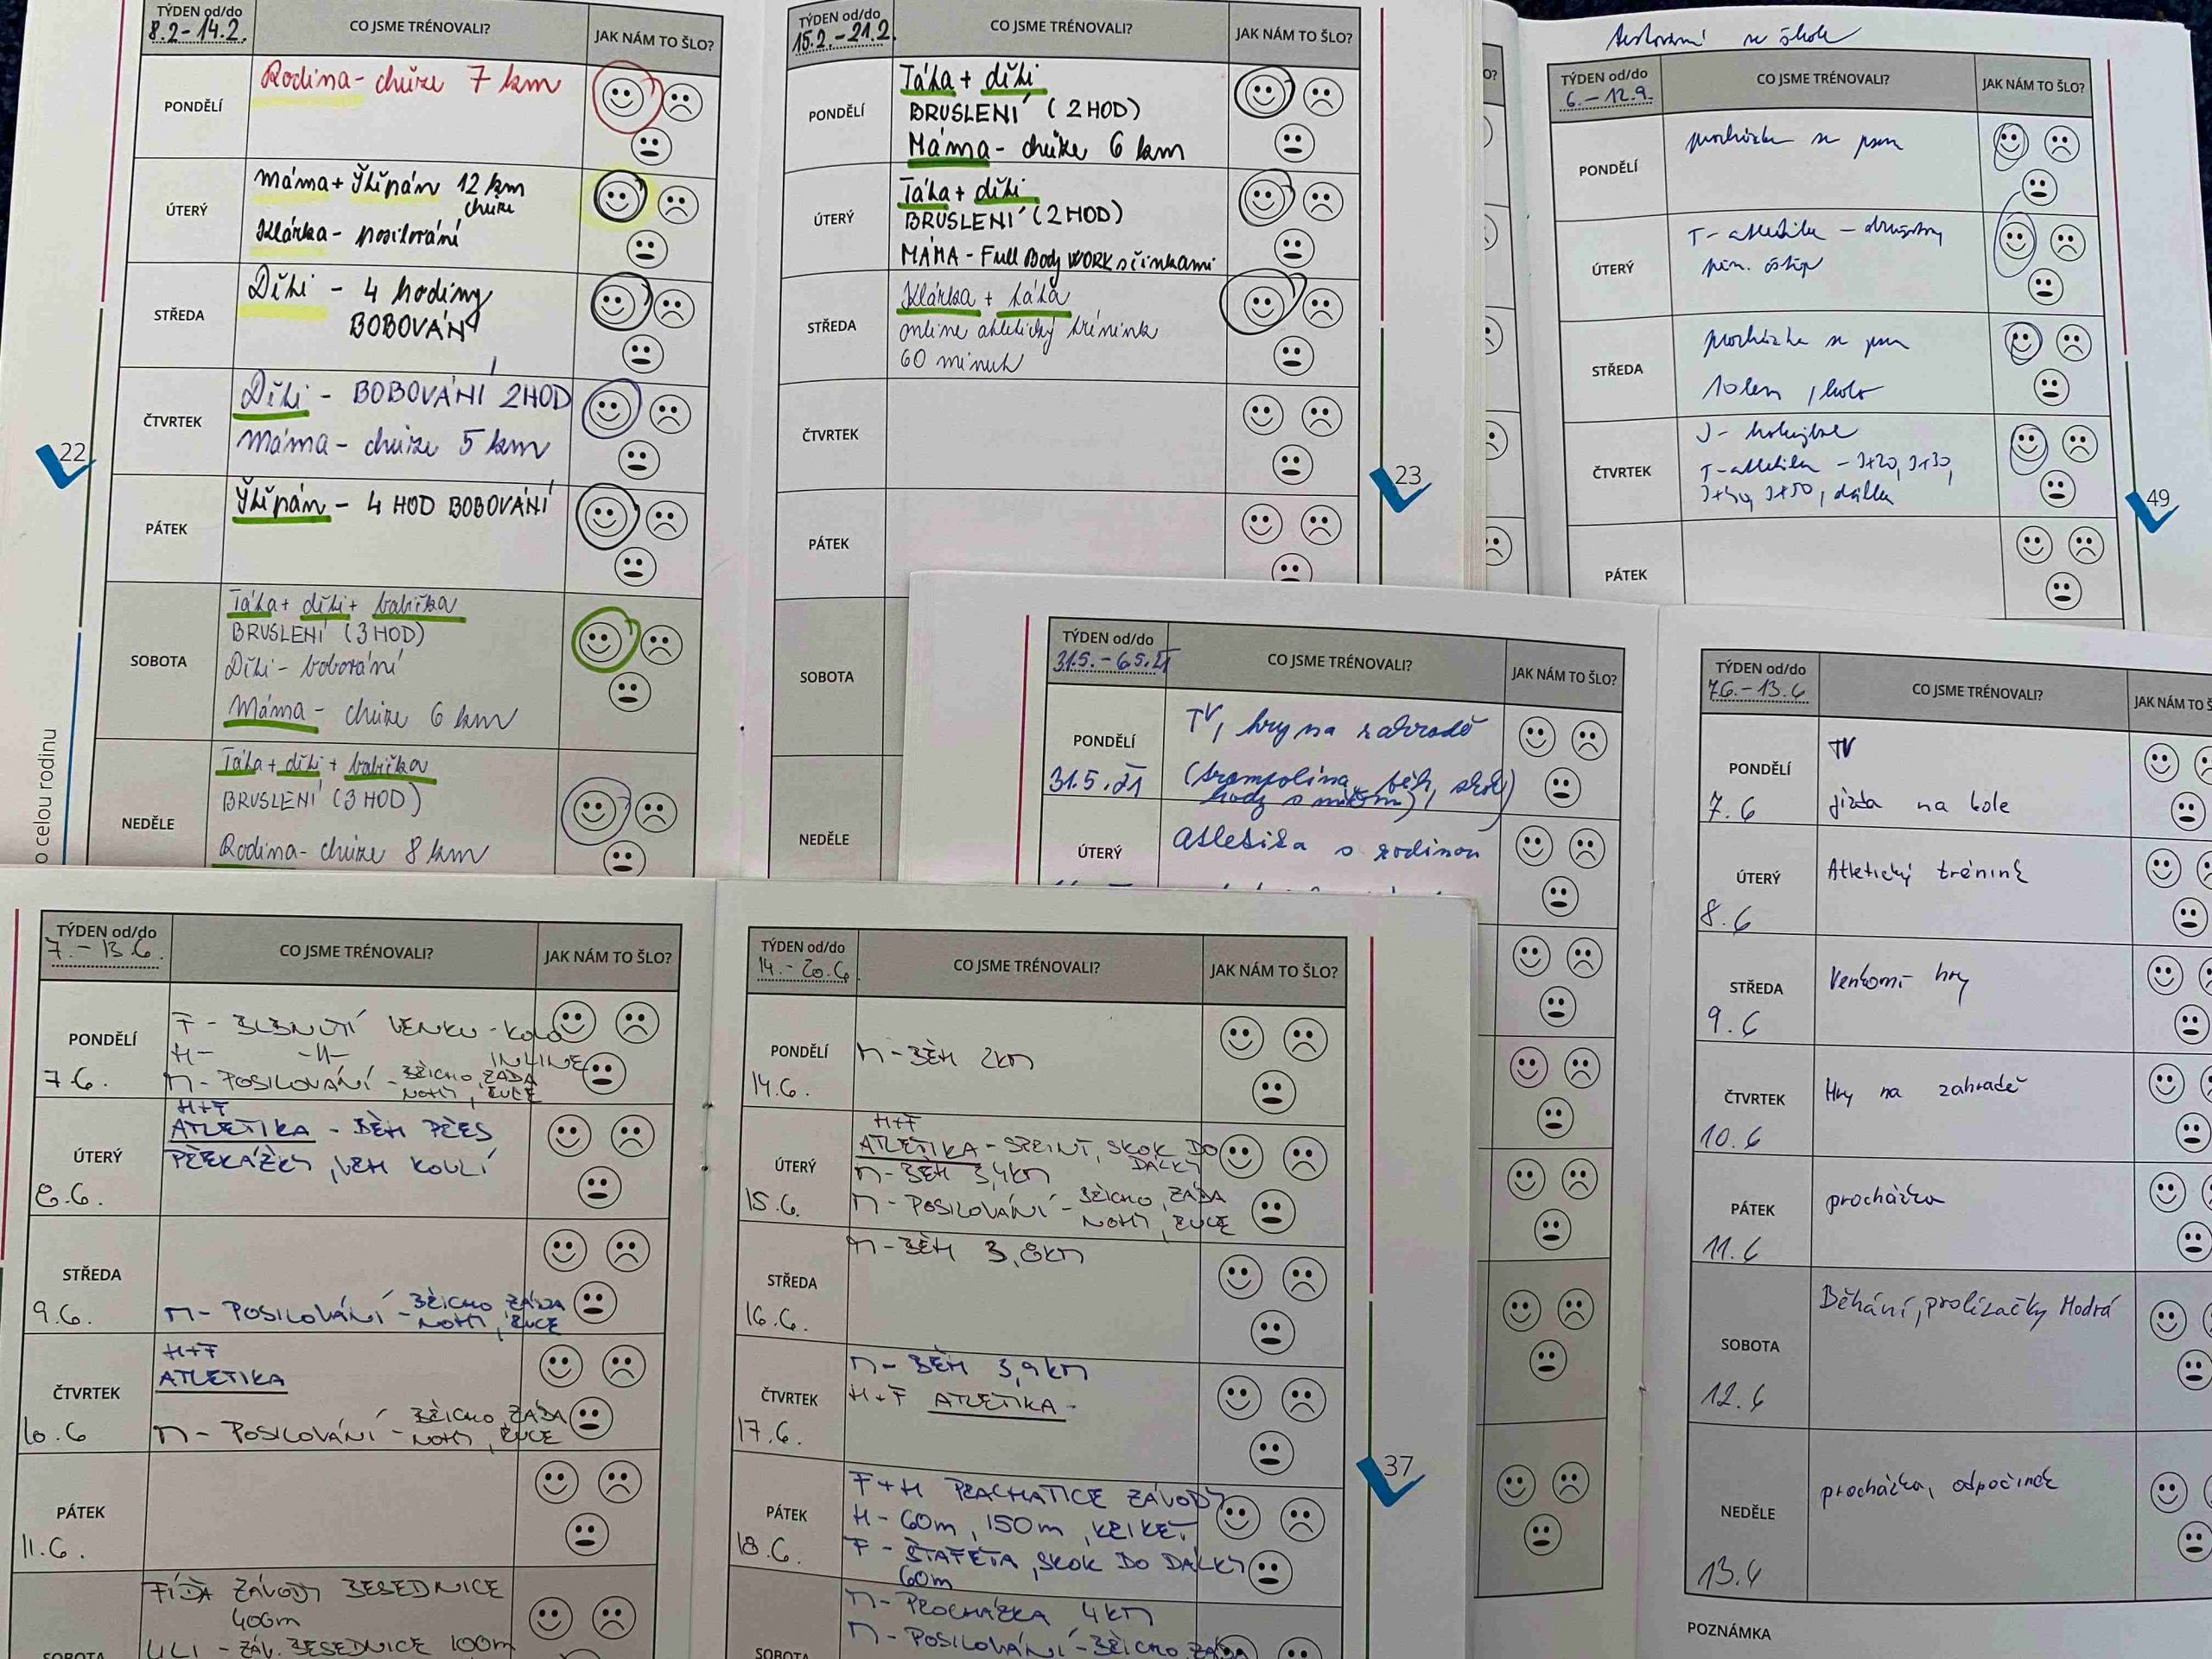 TÝDEN od/do
8.2-14.2.
CO JSME TRÉNOVALI?
JAK NÁM TO ŠLO?
PONDĚLÍ
Rodina - chůze 7 km
ÚTERÝ
Máma + Štěpán 12 km
chůze
Klárka - posilování
STŘEDA
Děti - 4 hodiny
BOBOVÁNÍ
ČTVRTEK
Děti - BOBOVÁNÍ 2HOD
Máma - chůze 5 km
PÁTEK
Štěpán - 4 HOD BOBOVÁNÍ
SOBOTA
Táta + děti + babička
BRUSLENÍ (3 HOD)
Děti - bobování
Máma - chůze 6 km
NEDĚLE
Táta + děti + babička
BRUSLENÍ (3 HOD)
Rodina - chůze 8 km
22
o celou rodinu
TÝDEN od/do
15.2.-21.2.
CO JSME TRÉNOVALI?
JAK NÁM TO ŠLO?
PONDĚLÍ
Táta + děti
BRUSLENÍ (2 HOD)
Máma - chůze 6 km
ÚTERÝ
Táta + děti
BRUSLENÍ (2 HOD)
MÁMA - Full Body WORK s činkami
STŘEDA
Klárka + táta
online atletický trénink
60 minut
ČTVRTEK
PÁTEK
SOBOTA
NEDĚLE
23
O?
testování ve škole
TÝDEN od/do
6.-12.9.
CO JSME TRÉNOVALI?
JAK NÁM TO ŠLO?
PONDĚLÍ
procházka se psem
ÚTERÝ
T- atletika -
STŘEDA
procházka se psem
10 km, kolo
ČTVRTEK
J- hokejbal
T- atletika - 3x20, 3x30,
3x40, 3x50, dálka
PÁTEK
49
TÝDEN od/do
31.5.-6.5.21
CO JSME TRÉNOVALI?
JAK NÁM TO ŠLO?
PONDĚLÍ
31.5.21
TV, hry na zahradě
(trampolína, běh, skok,
hody s míčem)
ÚTERÝ
atletika s rodinou
TÝDEN od/do
7.6.-13.6
CO JSME TRÉNOVALI?
JAK NÁM TO Š
PONDĚLÍ
7.6
TV
jízda na kole
ÚTERÝ
8.6
Atletický trénink
STŘEDA
9.6
Venkovní hry
ČTVRTEK
10.6
Hry na zahradě
PÁTEK
11.6
procházka
SOBOTA
12.6
Běhání, prolízačky Modrá
NEDĚLE
13.6
procházka, odpočinek
POZNÁMKA
TÝDEN od/do
7.-13.6.
CO JSME TRÉNOVALI?
JAK NÁM TO ŠLO?
PONDĚLÍ
7.6.
F - BLBNUTÍ VENKU - KOLO
H - -II- INLINE
M - POSILOVÁNÍ - BŘICHO, ZÁDA
NOHY, RUCE
ÚTERÝ
8.6.
H+F
ATLETIKA - BĚH PŘES
PŘEKÁŽKY, VRH KOULÍ
STŘEDA
9.6.
M - POSILOVÁNÍ - BŘICHO, ZÁDA
NOHY, RUCE
ČTVRTEK
10.6
H+F
ATLETIKA
M - POSILOVÁNÍ - BŘICHO, ZÁDA
NOHY, RUCE
PÁTEK
11.6.
SOBOTA
FÍĎA ZÁVODY BESEDNICE
400m
ULI - ZÁV. BESEDNICE 100m
TÝDEN od/do
14.-20.6
CO JSME TRÉNOVALI?
JAK NÁM TO ŠLO?
PONDĚLÍ
14.6.
M - BĚH 2KM
ÚTERÝ
15.6.
H+F
ATLETIKA - SPRINT, SKOK DO
DÁLKY
M - BĚH 3,4KM
M - POSILOVÁNÍ - BŘICHO, ZÁDA
NOHY, RUCE
STŘEDA
16.6.
M - BĚH 3,8KM
ČTVRTEK
17.6.
M - BĚH 3,9KM
H+F ATLETIKA -
PÁTEK
18.6.
F+H PRACHATICE ZÁVODY
H - 60m, 150m, KRIKET
F - ŠTAFETA, SKOK DO DÁLKY
60m
SOBOTA
M - PROCHÁZKA 4KM
M - POSILOVÁNÍ - BŘICHO, ZÁDA
37